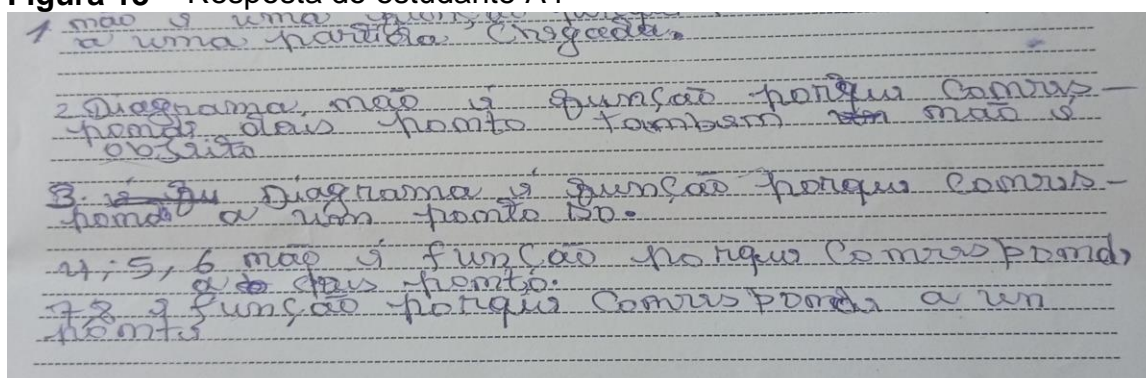 Figura 18 – Resposta do estudante A4
1 não é uma função porque
a uma partida chegada.
2 Diagrama, não é função porque comres-
ponde dois ponto tambem não é
objeito
3. Diagrama é função porque comres-
ponde a um ponto so.
4, 5, 6 não é função porque comresponde
a dois ponto.
7,8 é função porque comresponde a un
ponto